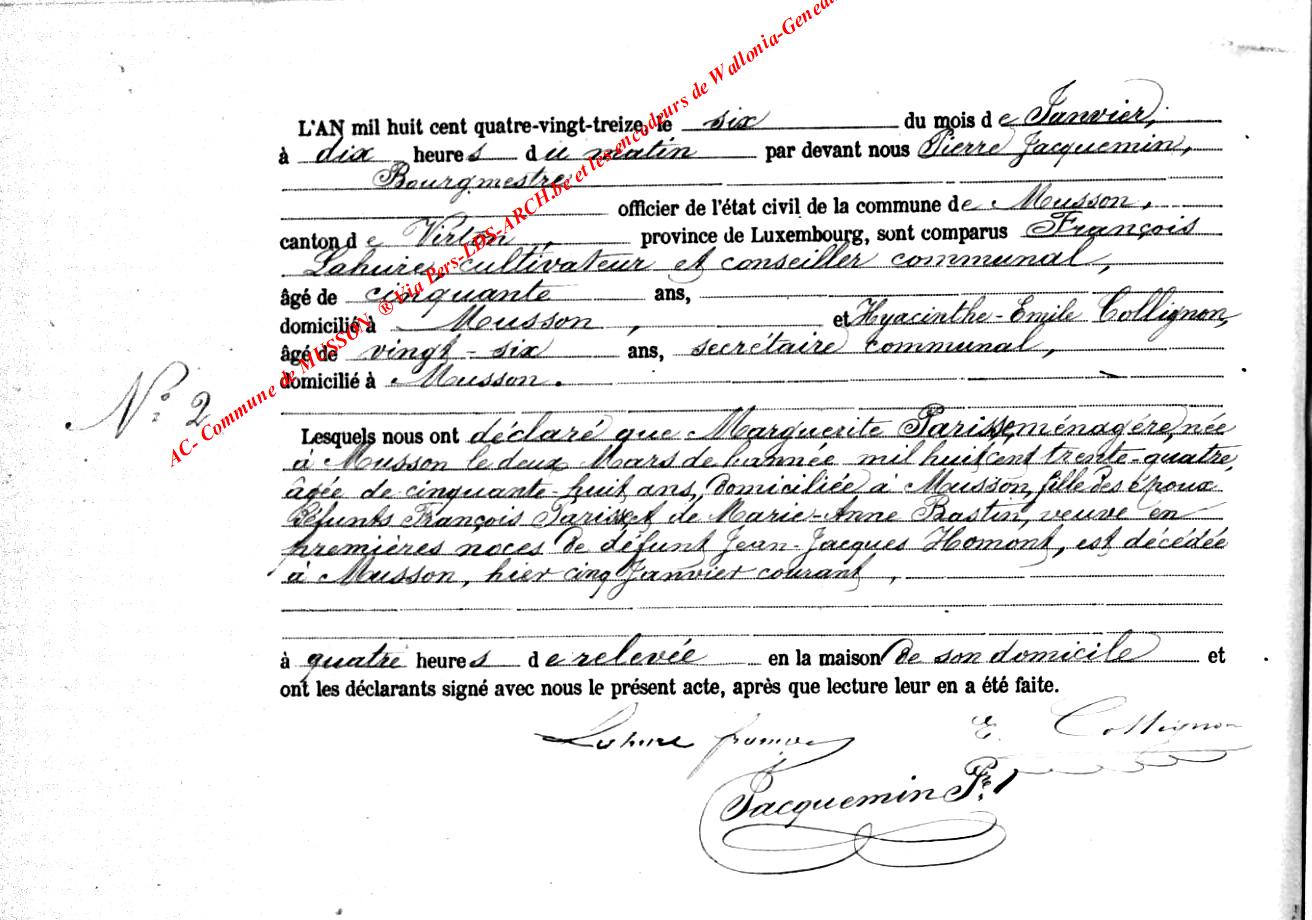 AC- Commune de MUSSON ® Via Pers-LDS-ARCH.be et les encodeurs de Wallonia-Genea
N° 2
L'AN mil huit cent quatre-vingt-treize, le six du mois de Janvier,
à dix heures du matin par devant nous Pierre Jacquemin,
Bourgmestre
officier de l'état civil de la commune de Musson,
canton de Virton, province de Luxembourg, sont comparus François
Lahure, cultivateur et conseiller communal,
âgé de cinquante ans,
domicilié à Musson, et Hyacinthe-Emile Collignon,
âgé de vingt-six ans, secrétaire communal,
domicilié à Musson.
Lesquels nous ont déclaré que Marguerite Parisse, ménagère, née
à Musson le deux Mars de l'année mil huit cent trente-quatre,
âgée de cinquante-huit ans, domiciliée à Musson, fille des époux
défunts François Parisse et de Marie-Anne Bastin, veuve en
premières noces de défunt Jean-Jacques Homont, est décédée
à Musson, hier cinq Janvier courant,
à quatre heures de relevée en la maison de son domicile et
ont les déclarants signé avec nous le présent acte, après que lecture leur en a été faite.
Lahure E. Collignon
Jacquemin Pre